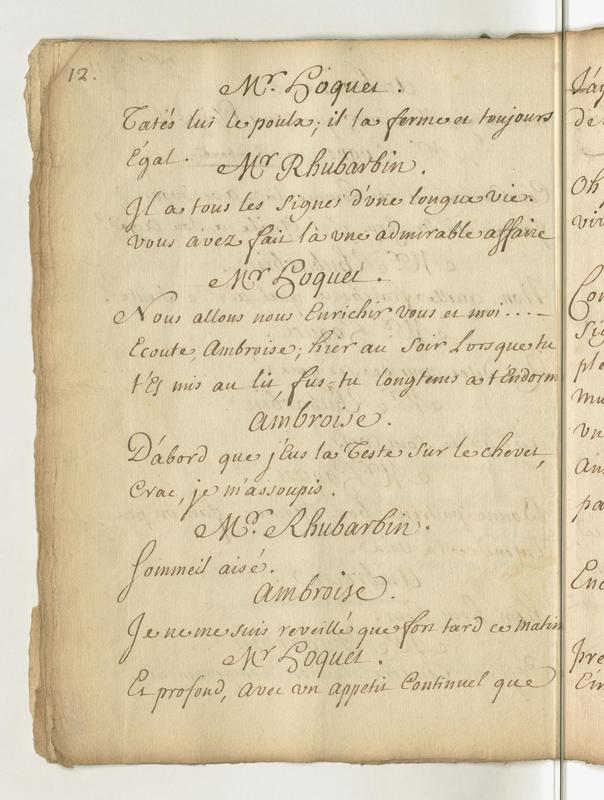 12.
Mr. Hoquet.
Tatés lui le poulx; il l'a ferme et toujours
Égal.
Mr Rhubarbin.
Il a tous les signes d'une longue vie.
vous avez fait là une admirable affaire
Mr Hoquet.
Nous allons nous Enrichir vous et moi....-
Ecoute, Ambroise; hier au soir Lorsque tu
t'És mis au lit, fus-tu longtems a t'Endorm
Ambroise.
D'abord que j'Eus la Teste sur le chevet,
Crac, je m'assoupis.
Mr. Rhubarbin.
Sommeil aisé.
Ambroise.
Je ne me suis reveillé que fort tard ce matin
Mr Hoquet.
Et profond, avec un appetit Continuel que
de
Oh
viv
Con
sig
ple
mu
un
an
pa
Enc
pre